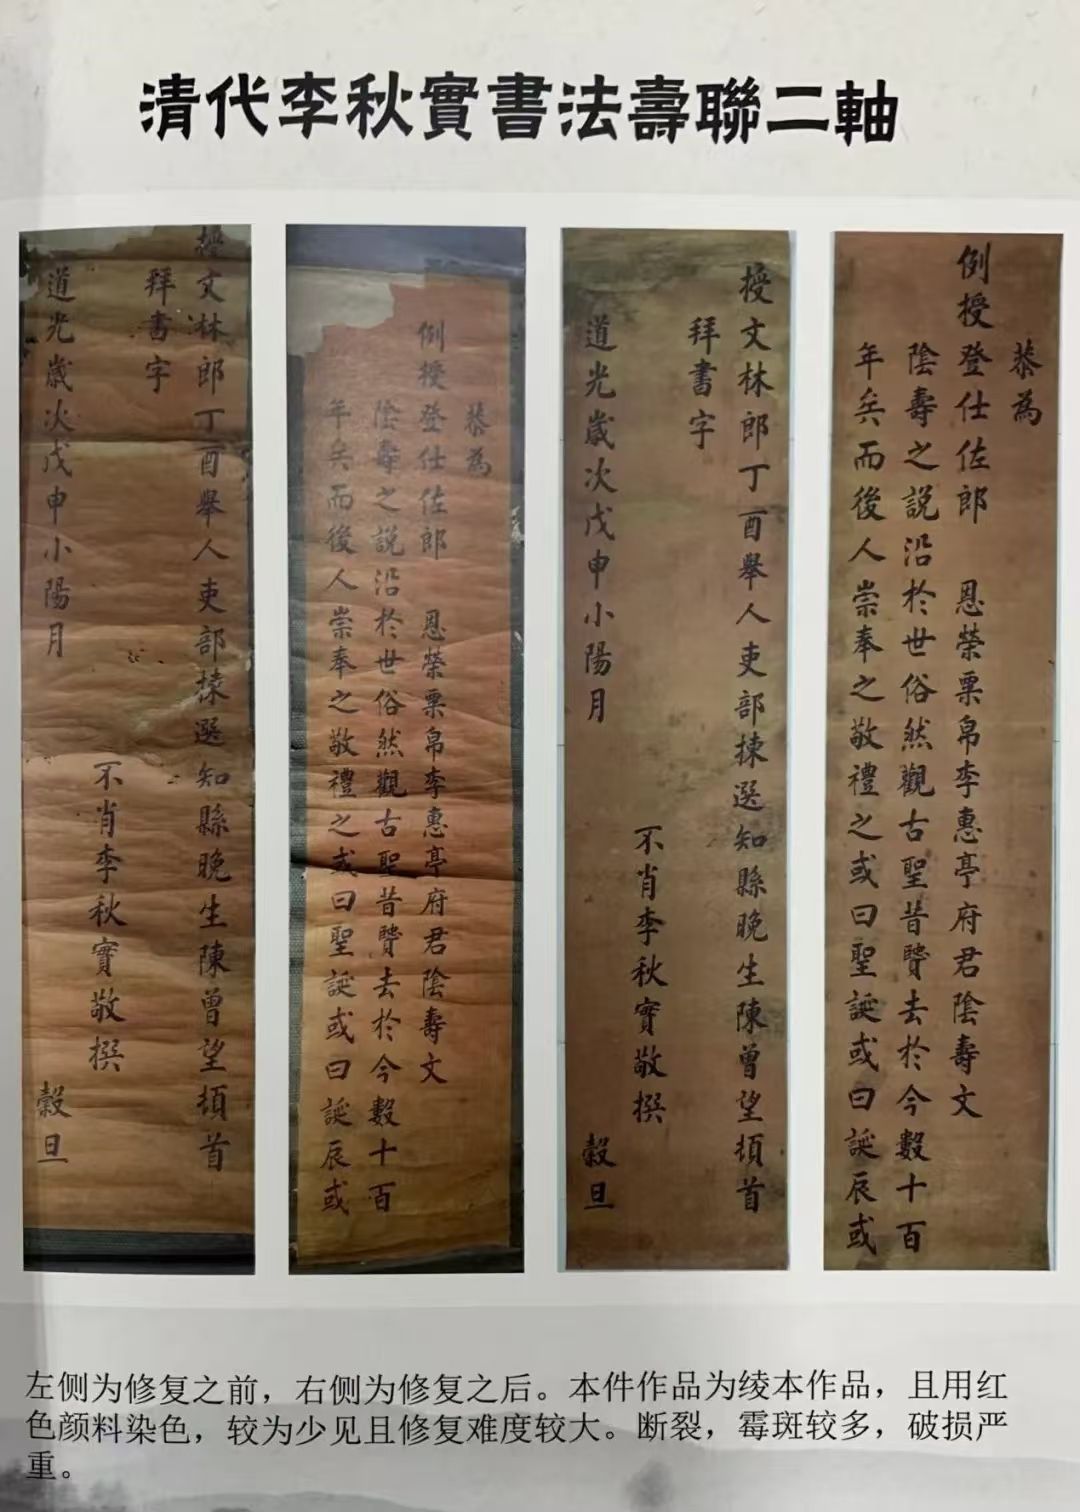 清代李秋實書法壽聯二軸
授文林郎丁酉舉人吏部揀選知縣晚生陳曾望頓首
拜書字
不肖李秋實敬撰
道光歲次戊申小陽月 穀旦
恭為
例授登仕佐郎 恩榮粟帛李惠亭府君陰壽文
陰壽之説沿於世俗然觀古聖昔賢去於今數十百
年矣而後人崇奉之敬禮之或曰聖誕或曰誕辰或
授文林郎丁酉舉人吏部揀選知縣晚生陳曾望頓首
拜書字
不肖李秋實敬撰
道光歲次戊申小陽月 穀旦
恭為
例授登仕佐郎 恩榮粟帛李惠亭府君陰壽文
陰壽之説沿於世俗然觀古聖昔賢去於今數十百
年矣而後人崇奉之敬禮之或曰聖誕或曰誕辰或
左侧为修复之前，右侧为修复之后。本件作品为绫本作品，且用红
色颜料染色，较为少见且修复难度较大。断裂，霉斑较多，破损严
重。